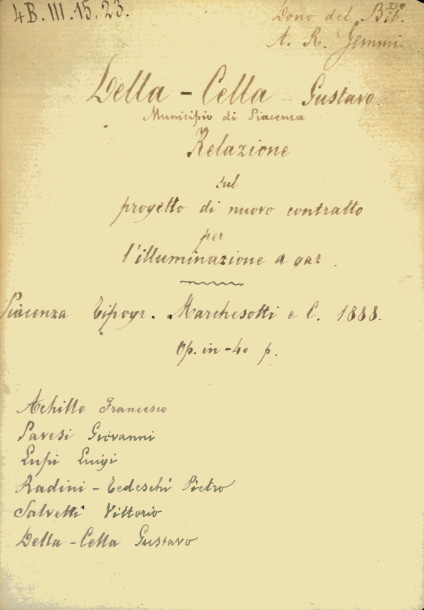 4B.III.15.23.
Dono del Bib.
A. R. Jemmi
Della - Cella Gustavo
Municipio di Piacenza
Relazione
sul
progetto di nuovo contratto
per
l'illuminazione a gaz.
Piacenza Tipogr. Marchesotti e C. 1888.
Op. in-4o p.
Achille Francesco
Pavesi Giovanni
Lupi Luigi
Radini - Tedeschi Pietro
Salvetti Vittorio
Della - Cella Gustavo